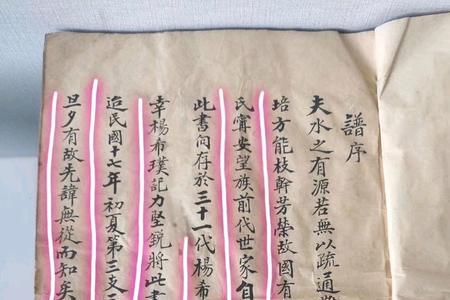 譜序
夫水之有源若無以疏通將
培方能枝幹芳榮故國有
氏甯安望族前代世家自
此書向存於三十一代楊希
幸楊布璞記力堅銳將此書
迨民國十七年初夏第三支
旦夕有故先諱無從而知矣